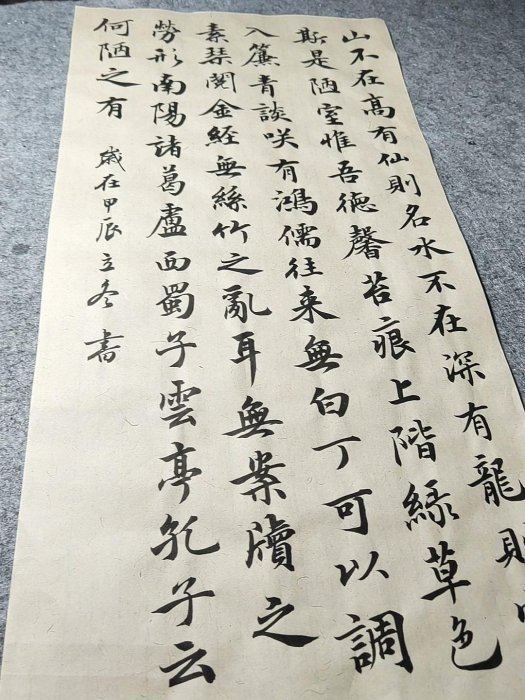 山不在高有仙則名水不在深有龍則
斯是陋室惟吾德馨苔痕上階緑草色
入簾青談咲有鴻儒往来無白丁可以調
素琴閱金經無絲竹之亂耳無案牘之
勞形南陽諸葛盧西蜀子雲亭孔子云
何陋之有 歲在甲辰立冬書